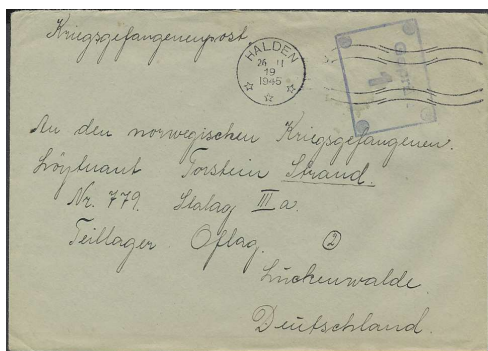 Kriegsgefangenenpost
HALDEN
26 II
19
1945
Geprüft
1
An den norwegischen Kriegsgefangenen.
Løytnant Torstein Strand.
Nr. 779. Stalag III a.
Teillager Oflag. 2
Luckenwalde.
Deutschland.